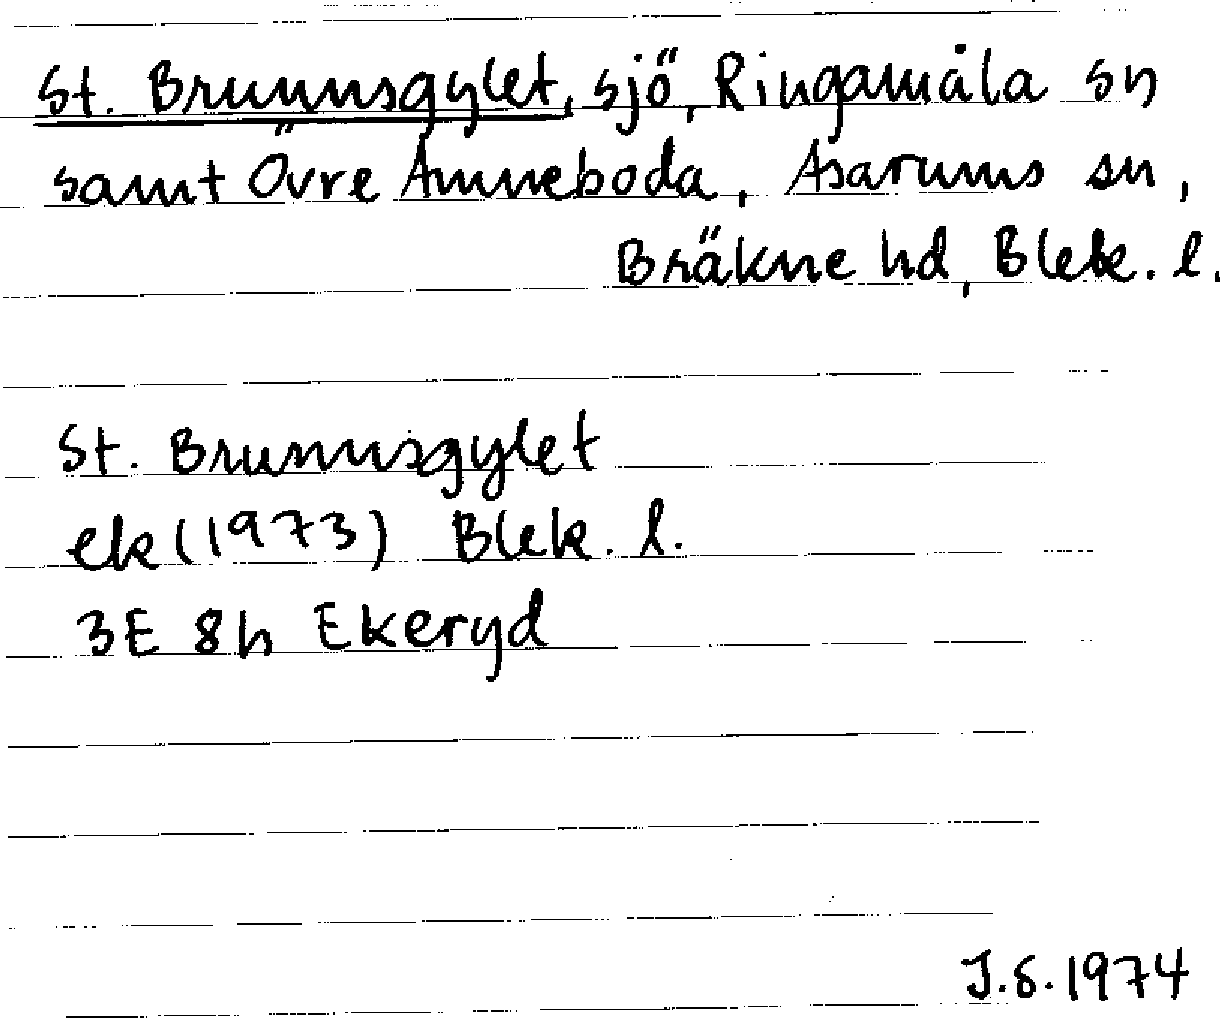 St. Brunnsgylet, sjö, Ringamåla sn
samt Övre Amneboda, Asarums sn,
Bräkne hd, Blek. l.
St. Brunnsgylet
ek (1973) Blek. l.
3E 8h Ekeryd
J.S. 1974